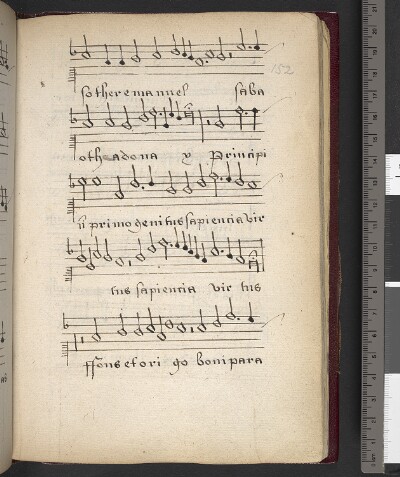 152
sother emanuel saba
oth adona y Principi
ū primo genitus sapiencia vir
tus sapiencia vir tus
ffons et ori go boni para